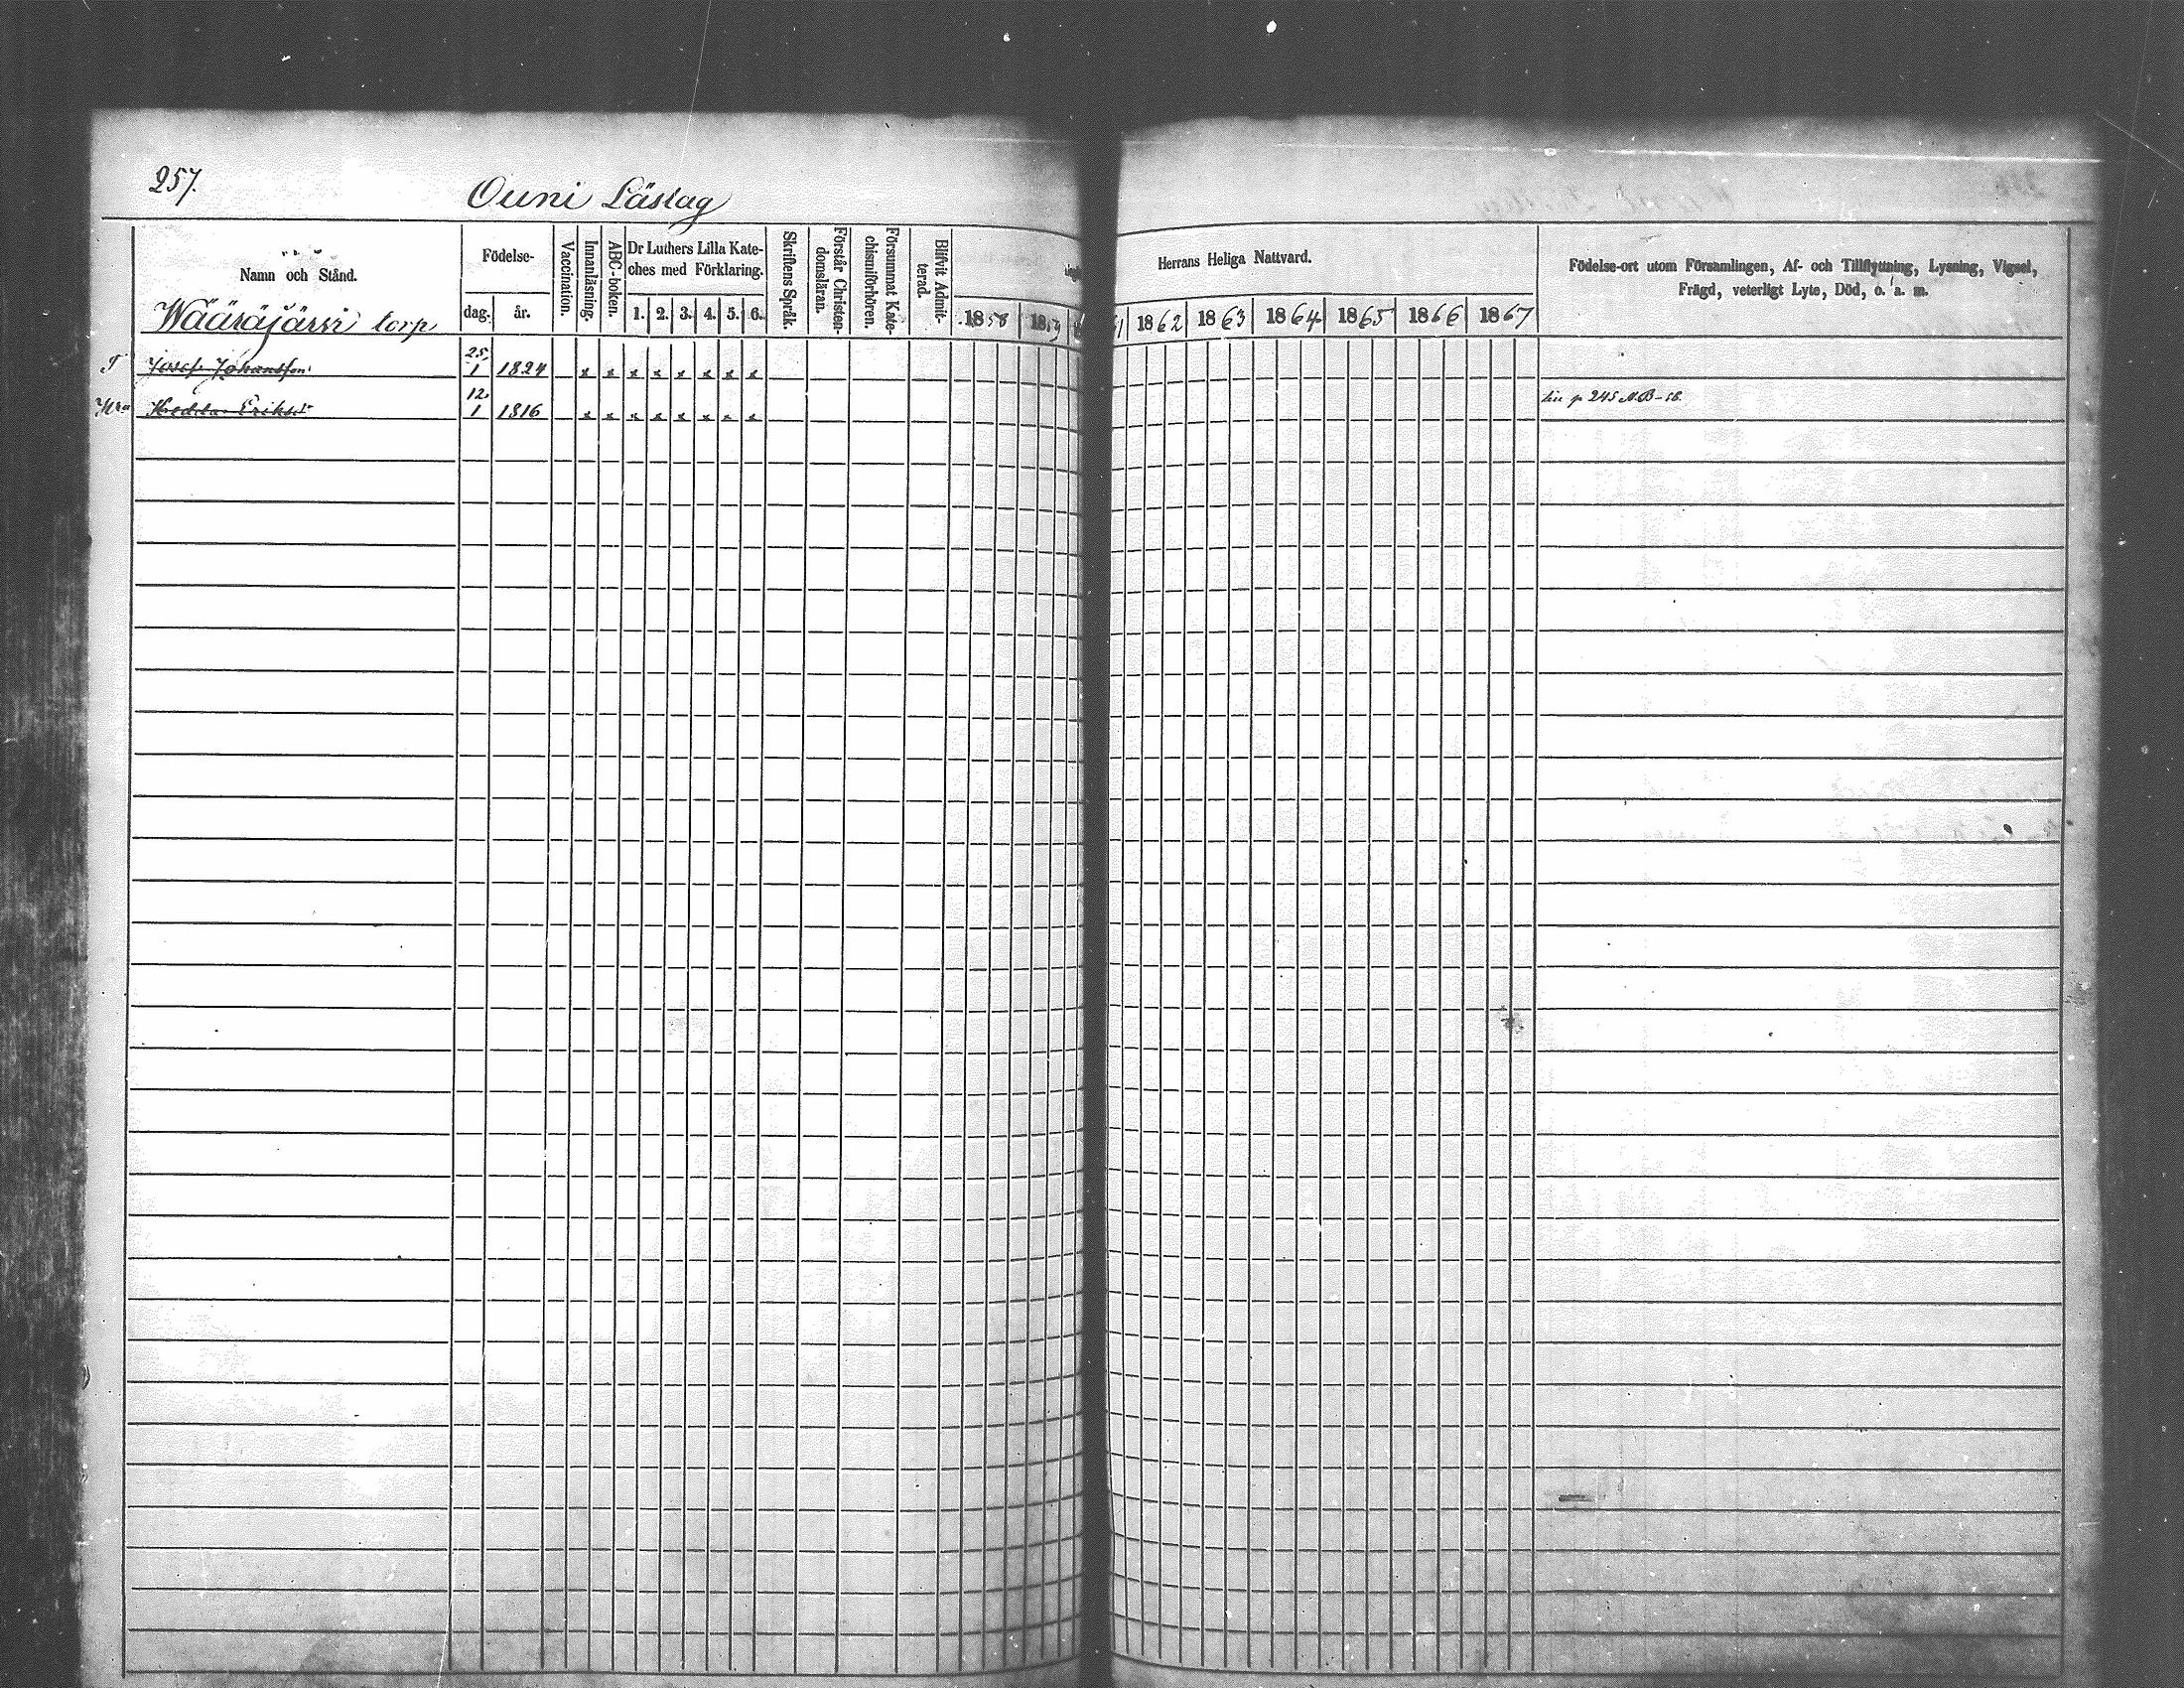 257.
Ouni Läslag
Namn och Stånd.
Wääräjärvi torp
Födelse-
dag. år.
Vaccination.
Innanläsning.
ABC-boken.
Dr Luthers Lilla Kate-
ches med Förklaring.
1. 2. 3. 4. 5. 6.
Skriftens Språk.
Förstår Christen-
domsläran.
Försummat Kate-
chismiförhören.
Blifvit Admit-
terad.
1858 1859
Herrans Heliga Nattvard.
1862 1863 1864 1865 1866 1867
Födelse-ort utom Församlingen, Af- och Tillflyttning, Lysning, Vigsel,
Frägd, veterligt Lyte, Död, o. a. m.
T Josef Johansson 25/1 1824 x x x x x x x x
Hra Hedda Eriksd 12/1 1816 x x x x x x x x
p 245 N.B-58.